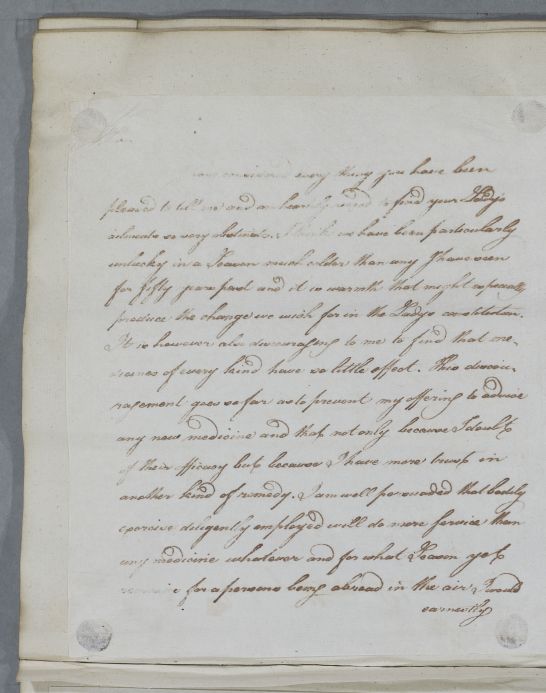 considered every thing you have been
pleased to tell me and am heartily to find your Ladys
so very obstinate. I think we have been particularly
unlucky in a Season much colder than any I have seen
for fifty years past and it is warmth that might especially
produce the change we wish for in the Ladys constitution.
It is however also discouraging to me to find that me-
-dicines of every kind have so little effect. This discou-
ragement goes so far as to prevent my offering to advise
any new medicine and that not only because I doubt
of their efficacy but because I have more trust in
another kind of remedy. I am well perswaded that bodily
exercise diligently employed will do more Service than
any medicine whatever and for what Season yet
remains for a persons being abroad in the air I would
earnestly